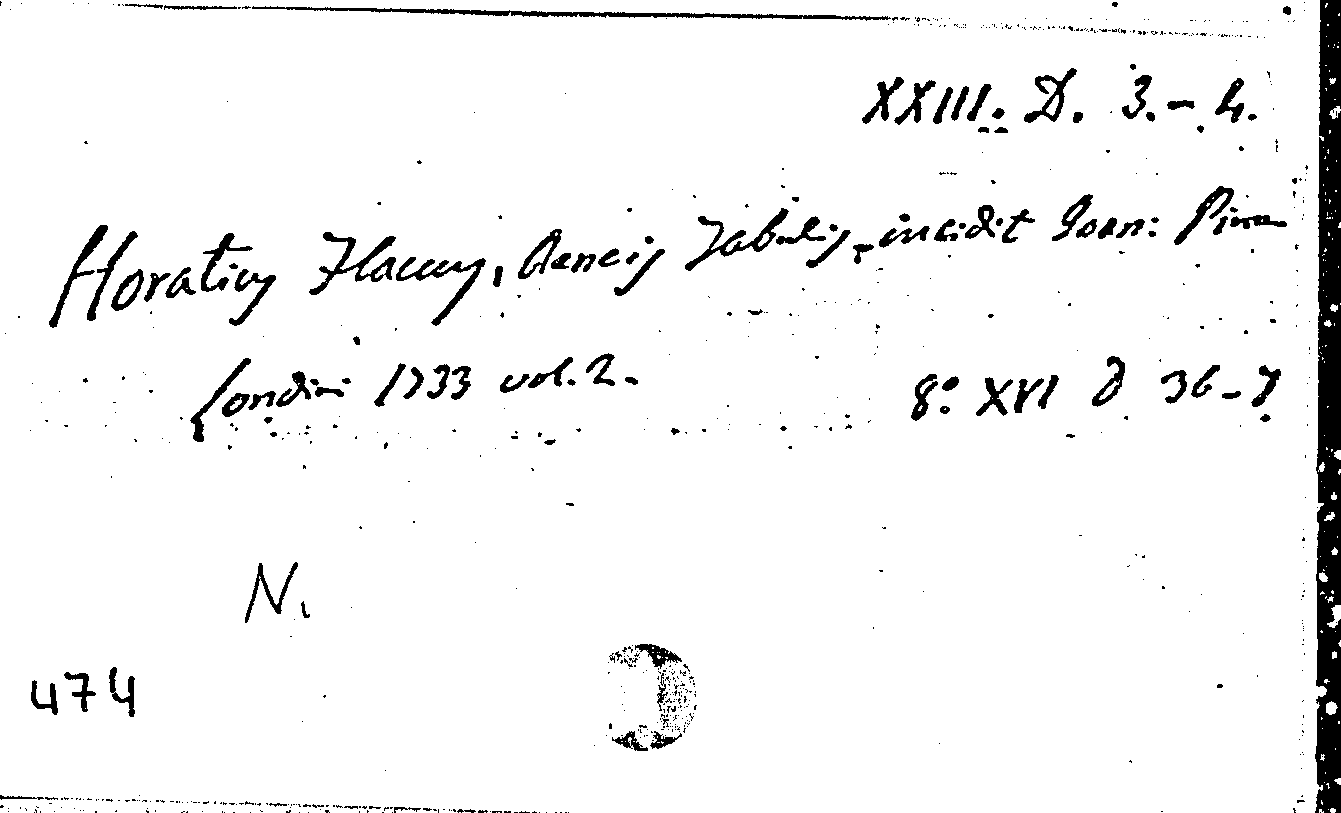 XXIII. D. 3.-4.
Horatius Flaccus, Aeneis Tabulis, incidit Ioan: Pine
Londini 1733 vol. 2. 8° XVI d 36-7
N.
474